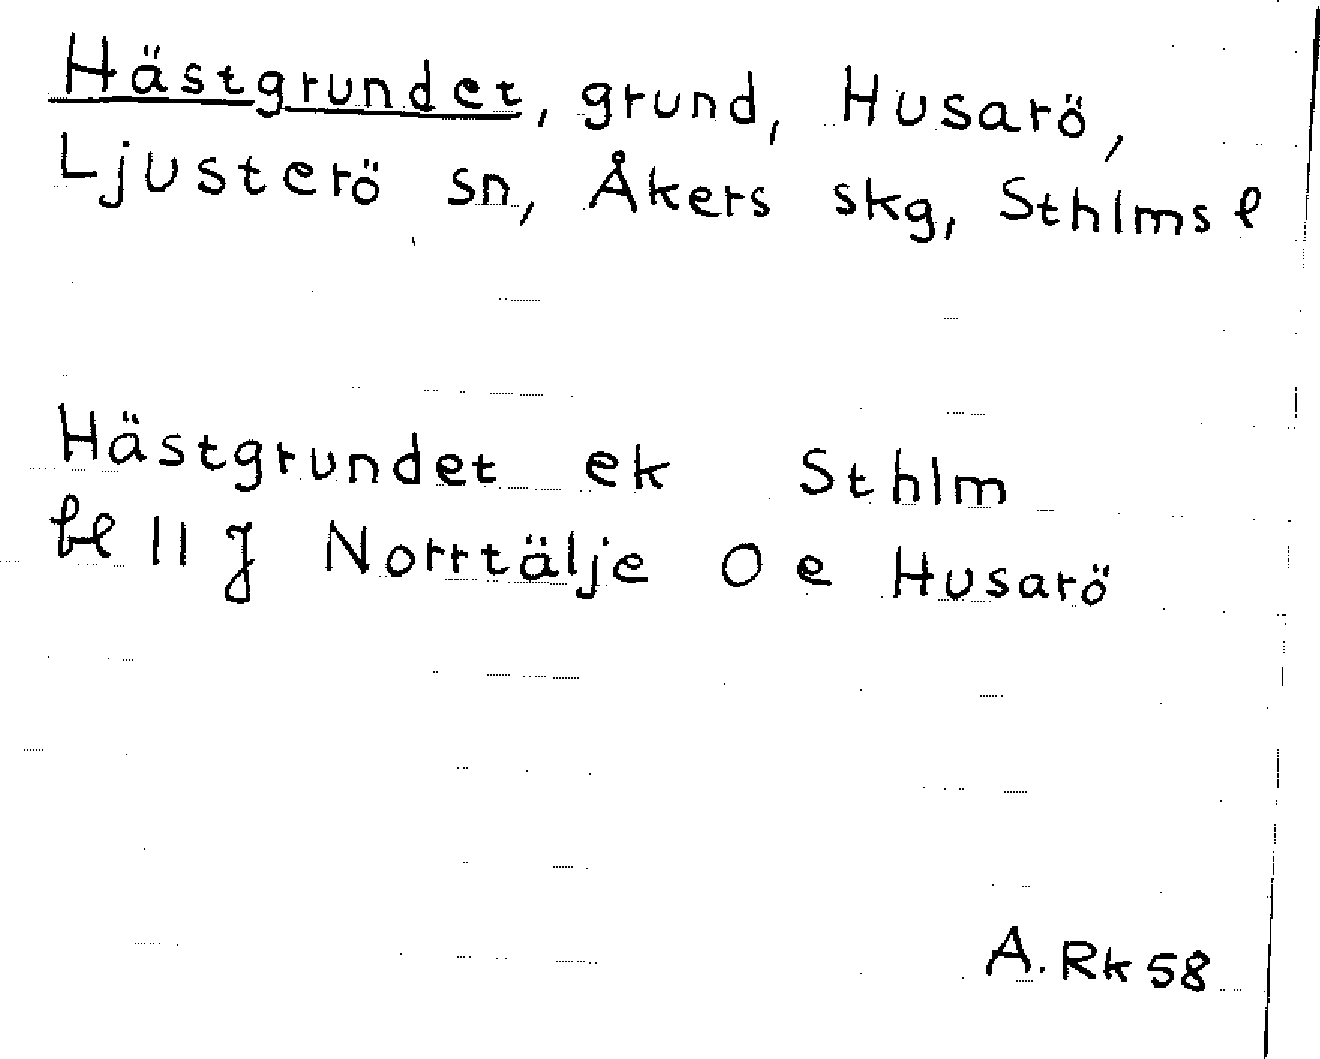 Hästgrundet, grund, Husarö,
Ljusterö sn, Åkers skg, Sthlms l
Hästgrundet ek Sthlm
bl 11 J Norrtälje O e Husarö
A. Rk 58